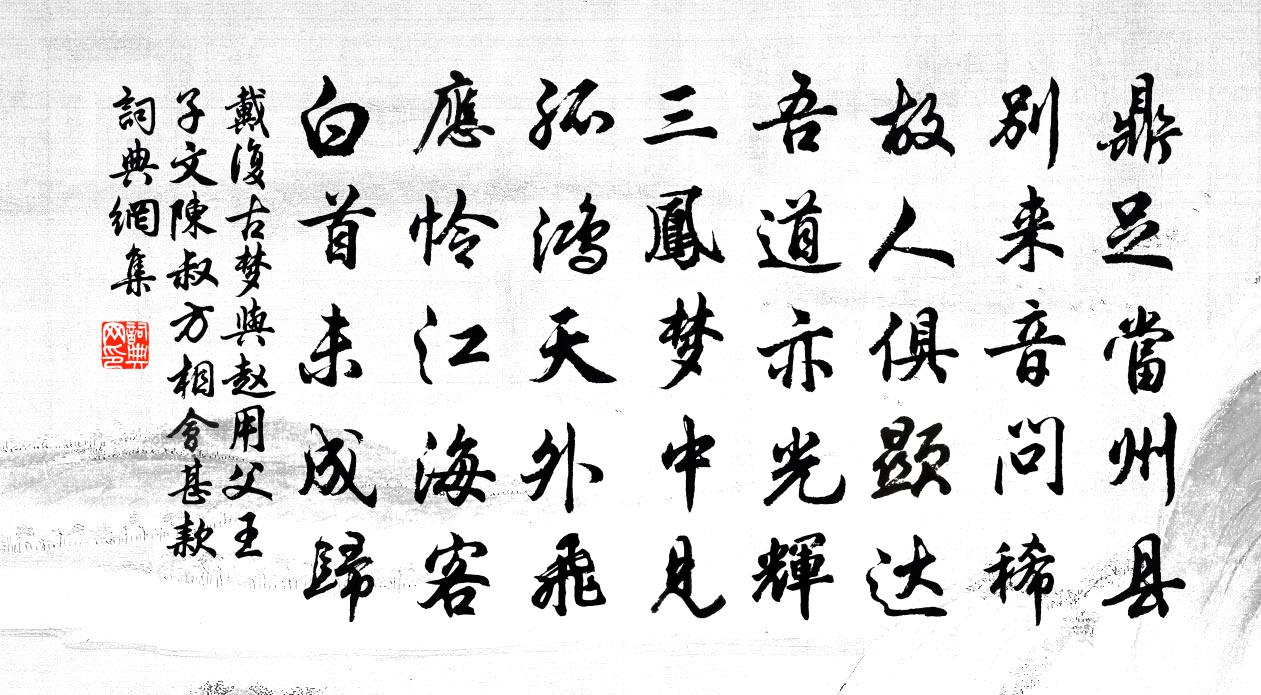 鼎足當州县
別来音问稀
故人俱顕达
吾道亦光輝
三鳳梦中見
孤鸿天外飛
應怜江海客
白首未成歸
戴復古梦與赵用父王
子文陳叔方相會甚款
詞典網集
詞典
网印